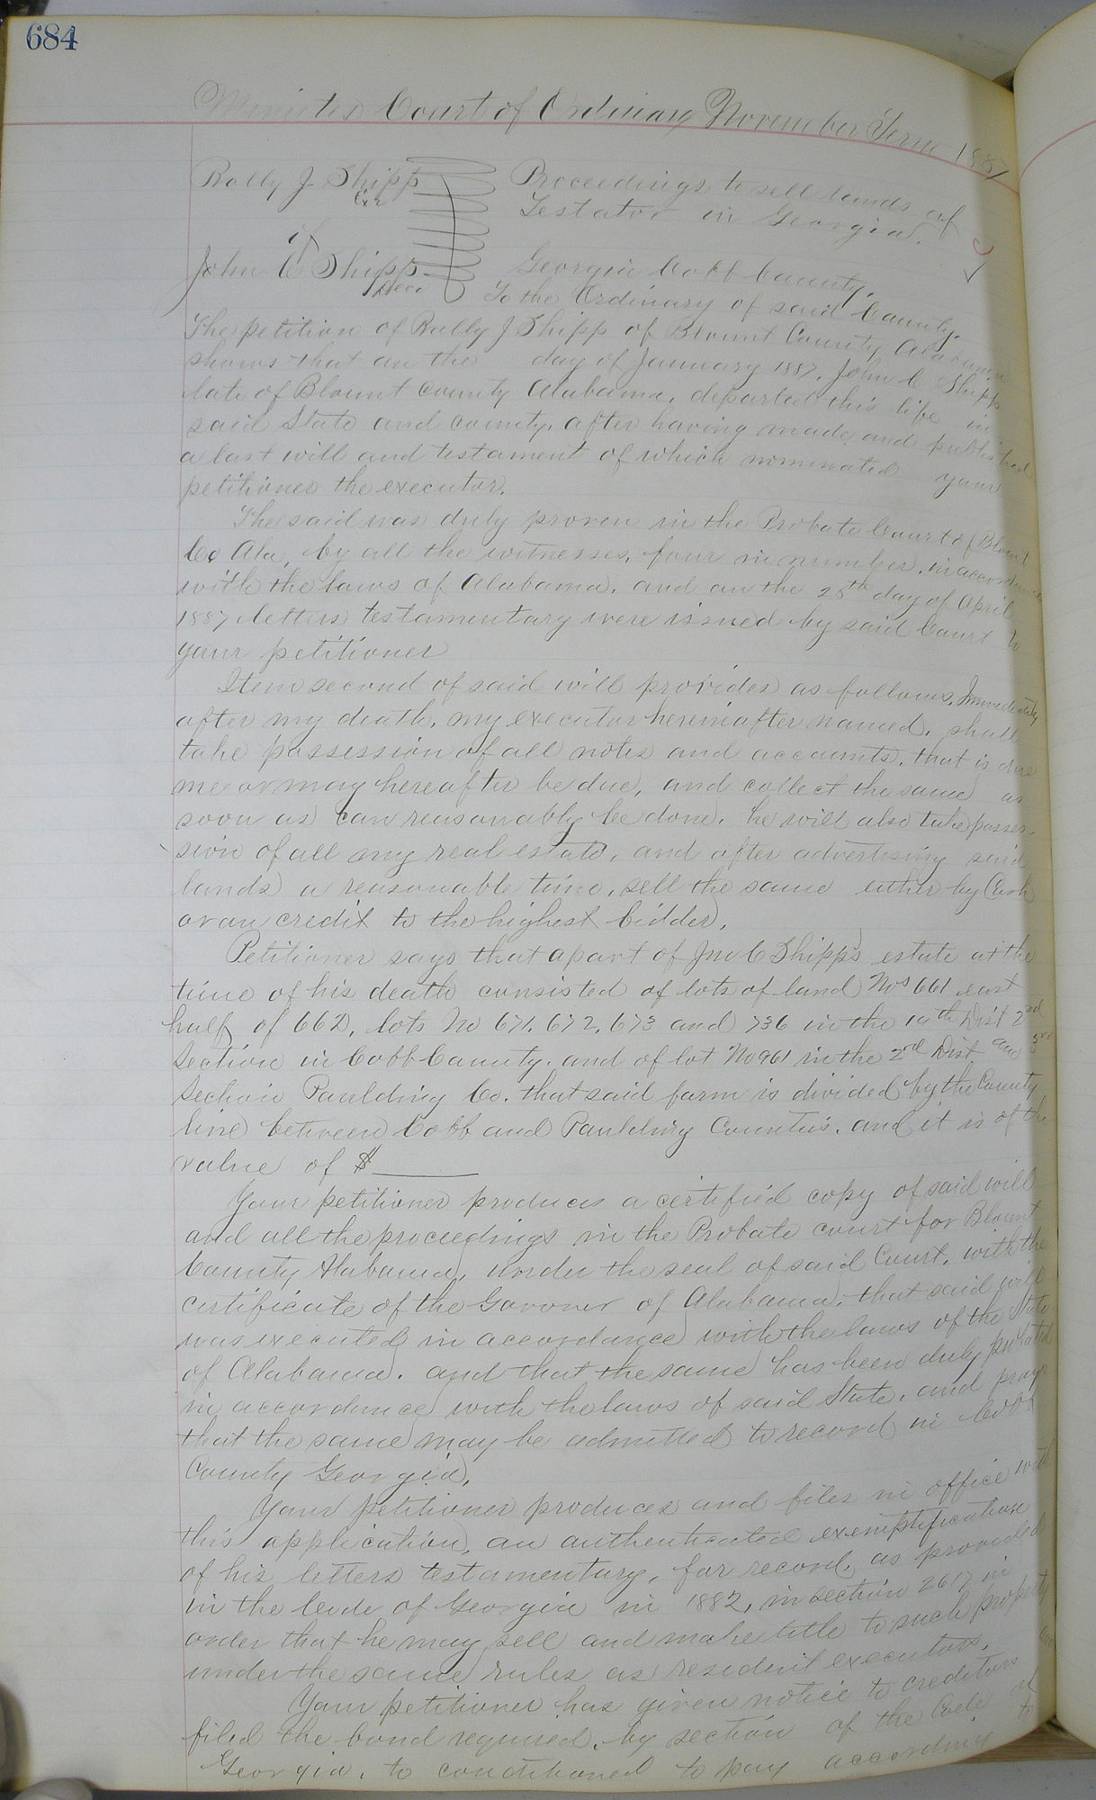 684
Minutes Court of Ordinary November Term 1887
Rally J. Shipp
Exr
of
John C Shipp
Decd
Proceedings to sell lands of
Testator in Georgia.
Georgia Cobb County.
To the Ordinary of said County.
The petition of Rally J Shipp of Blount County Alabama
shows that on the day of January 1887. John C Shipp
late of Blount County Alabama, departed this life in
said State and county, after having made and published
a last will and testament of which nominated your
petitioner the executor.
The said was duly proven in the Probate Court of Blount
Co Ala, by all the witnesses, four in number, in accordance
with the laws of Alabama, and on the 25th day of April
1887 letters testamentary were issued by said Court to
your petitioner
Item second of said will provides as follows, Immediately
after my death, my executor hereinafter named, shall
take possession of all notes and accounts, that is due
me or may hereafter be due, and collect the same as
soon as can reasonably be done. he will also take posses-
sion of all my real estate, and after advertising said
lands a reasonable time, sell the same either by Cash
or on credit to the highest bidder.
Petitioner says that a part of Jno C Shipp's estate at the
time of his death consisted of lots of land Nos 661 east
half of 662, lots No 671, 672, 673 and 736 in the 19th Dist 2nd
Section in Cobb County. and of lot No 961 in the 2nd Dist and 3rd
Section Paulding Co. that said farm is divided by the County
line between Cobb and Paulding Counties. and it is of the
value of $
Your petitioner produces a certified copy of said will
and all the proceedings in the Probate court for Blount
County Alabama, under the seal of said Court, with the
certificate of the Govenor of Alabama, that said will
was executed in accordance with the laws of the State
of Alabama. and that the same has been duly probated
in accordance with the laws of said State, and prays
that the same may be admitted to record in Cobb
County Georgia.
Your petitioner produces and files in office with
this application, an authenticated exemplification
of his letters testamentary, for record, as provided
in the Code of Georgia in 1882, in section 2617 in
order that he may sell and make title to such property
under the same rules as resident executors.
Your petitioner has given notice to creditors
filed the bond required, by section of the Code of
Georgia, to conditioned to pay according to